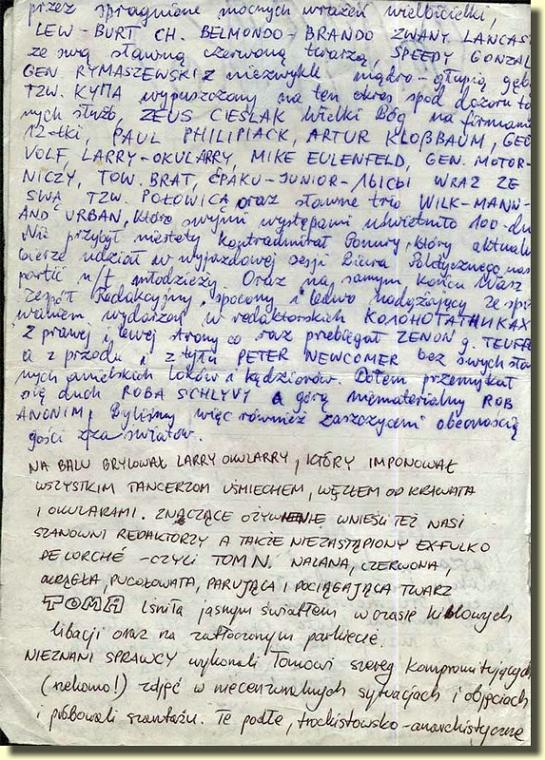 przez spragnione mocnych wrażeń wielbicielki,
LEW-BURT CH. BELMONDO-BRANDO ZWANY LANCAS
ze swą sławną czerwoną twarzą, SPEEDY GONZAL
GEN. RYMASZEWSKI z niezwykle mądro-głupią gęb
TZW. КУПА wypuszczony na ten okres spod dozoru ta
nych służb, ZEUS CIEŚLAK wielki Bóg na firmame
12-tki, PAUL PHILIPIACK, ARTUR KLOßBAUM, GEO
VOLF, LARRY-OKULARRY, MIKE EULENFELD, GEN. MOTOR-
NICZY, TOW. BRAT, ĆPAKU-JUNIOR- WRAZ ZE
SWĄ TZW. POŁOWICĄ oraz sławne trio WILK-MANN-
AND URBAN, które swymi występami uświetniło 100-dn
Nie przybył niestety kontradmirał Ponury, który aktual
bierze udział w wyjazdowej sesji Biura Politycznego nas
partii n/t młodzieży. Oraz na samym końcu Wasz
Zespół Redakcyjny, spocony i ledwo nadążający ze spi
waniem wydarzeń w redaktorskich КОЛОНОТАТНИКАХ
Z prawej i lewej strony co raz przebiegał ZENON g. TEUFFE
a z przodu i z tyłu PETER NEWCOMER bez swych sła
nych anielskich loków i kędziorów. Dołem przemykał
się duch ROBA SCHLYVY a górą niematerialny ROB
ANONIM. Byliśmy więc również zaszczyceni obecnością
gości zza światów.
NA BALU BRYLOWAŁ LARRY OKULARRY, KTÓRY IMPONOWAŁ
WSZYSTKIM TANCERZOM UŚMIECHEM, WĘZŁEM OD KRAWATA
I OKULARAMI. ZNACZĄCE OŻYWIENIE WNIEŚLI TEŻ NASI
SZANOWNI REDAKTORZY A TAKŻE NIEZASTĄPIONY EX-FULKO
DE LORCHÉ - CZYLI TOM N. NALANA, CZERWONA,
OKRĄGŁA, PUCOŁOWATA, PARUJĄCA I POCIĄGAJĄCA TWARZ
TOMA lśniła jasnym światłem w czasie kiblowych
libacji oraz na zatłoczonym parkiecie.
NIEZNANI SPRAWCY wykonali Tomowi szereg kompromitujących
(rzekomo!) zdjęć w niecenzuralnych sytuacjach i objęciach
i próbowali szantażu. Te podłe, trockistowsko-anarchistyczne